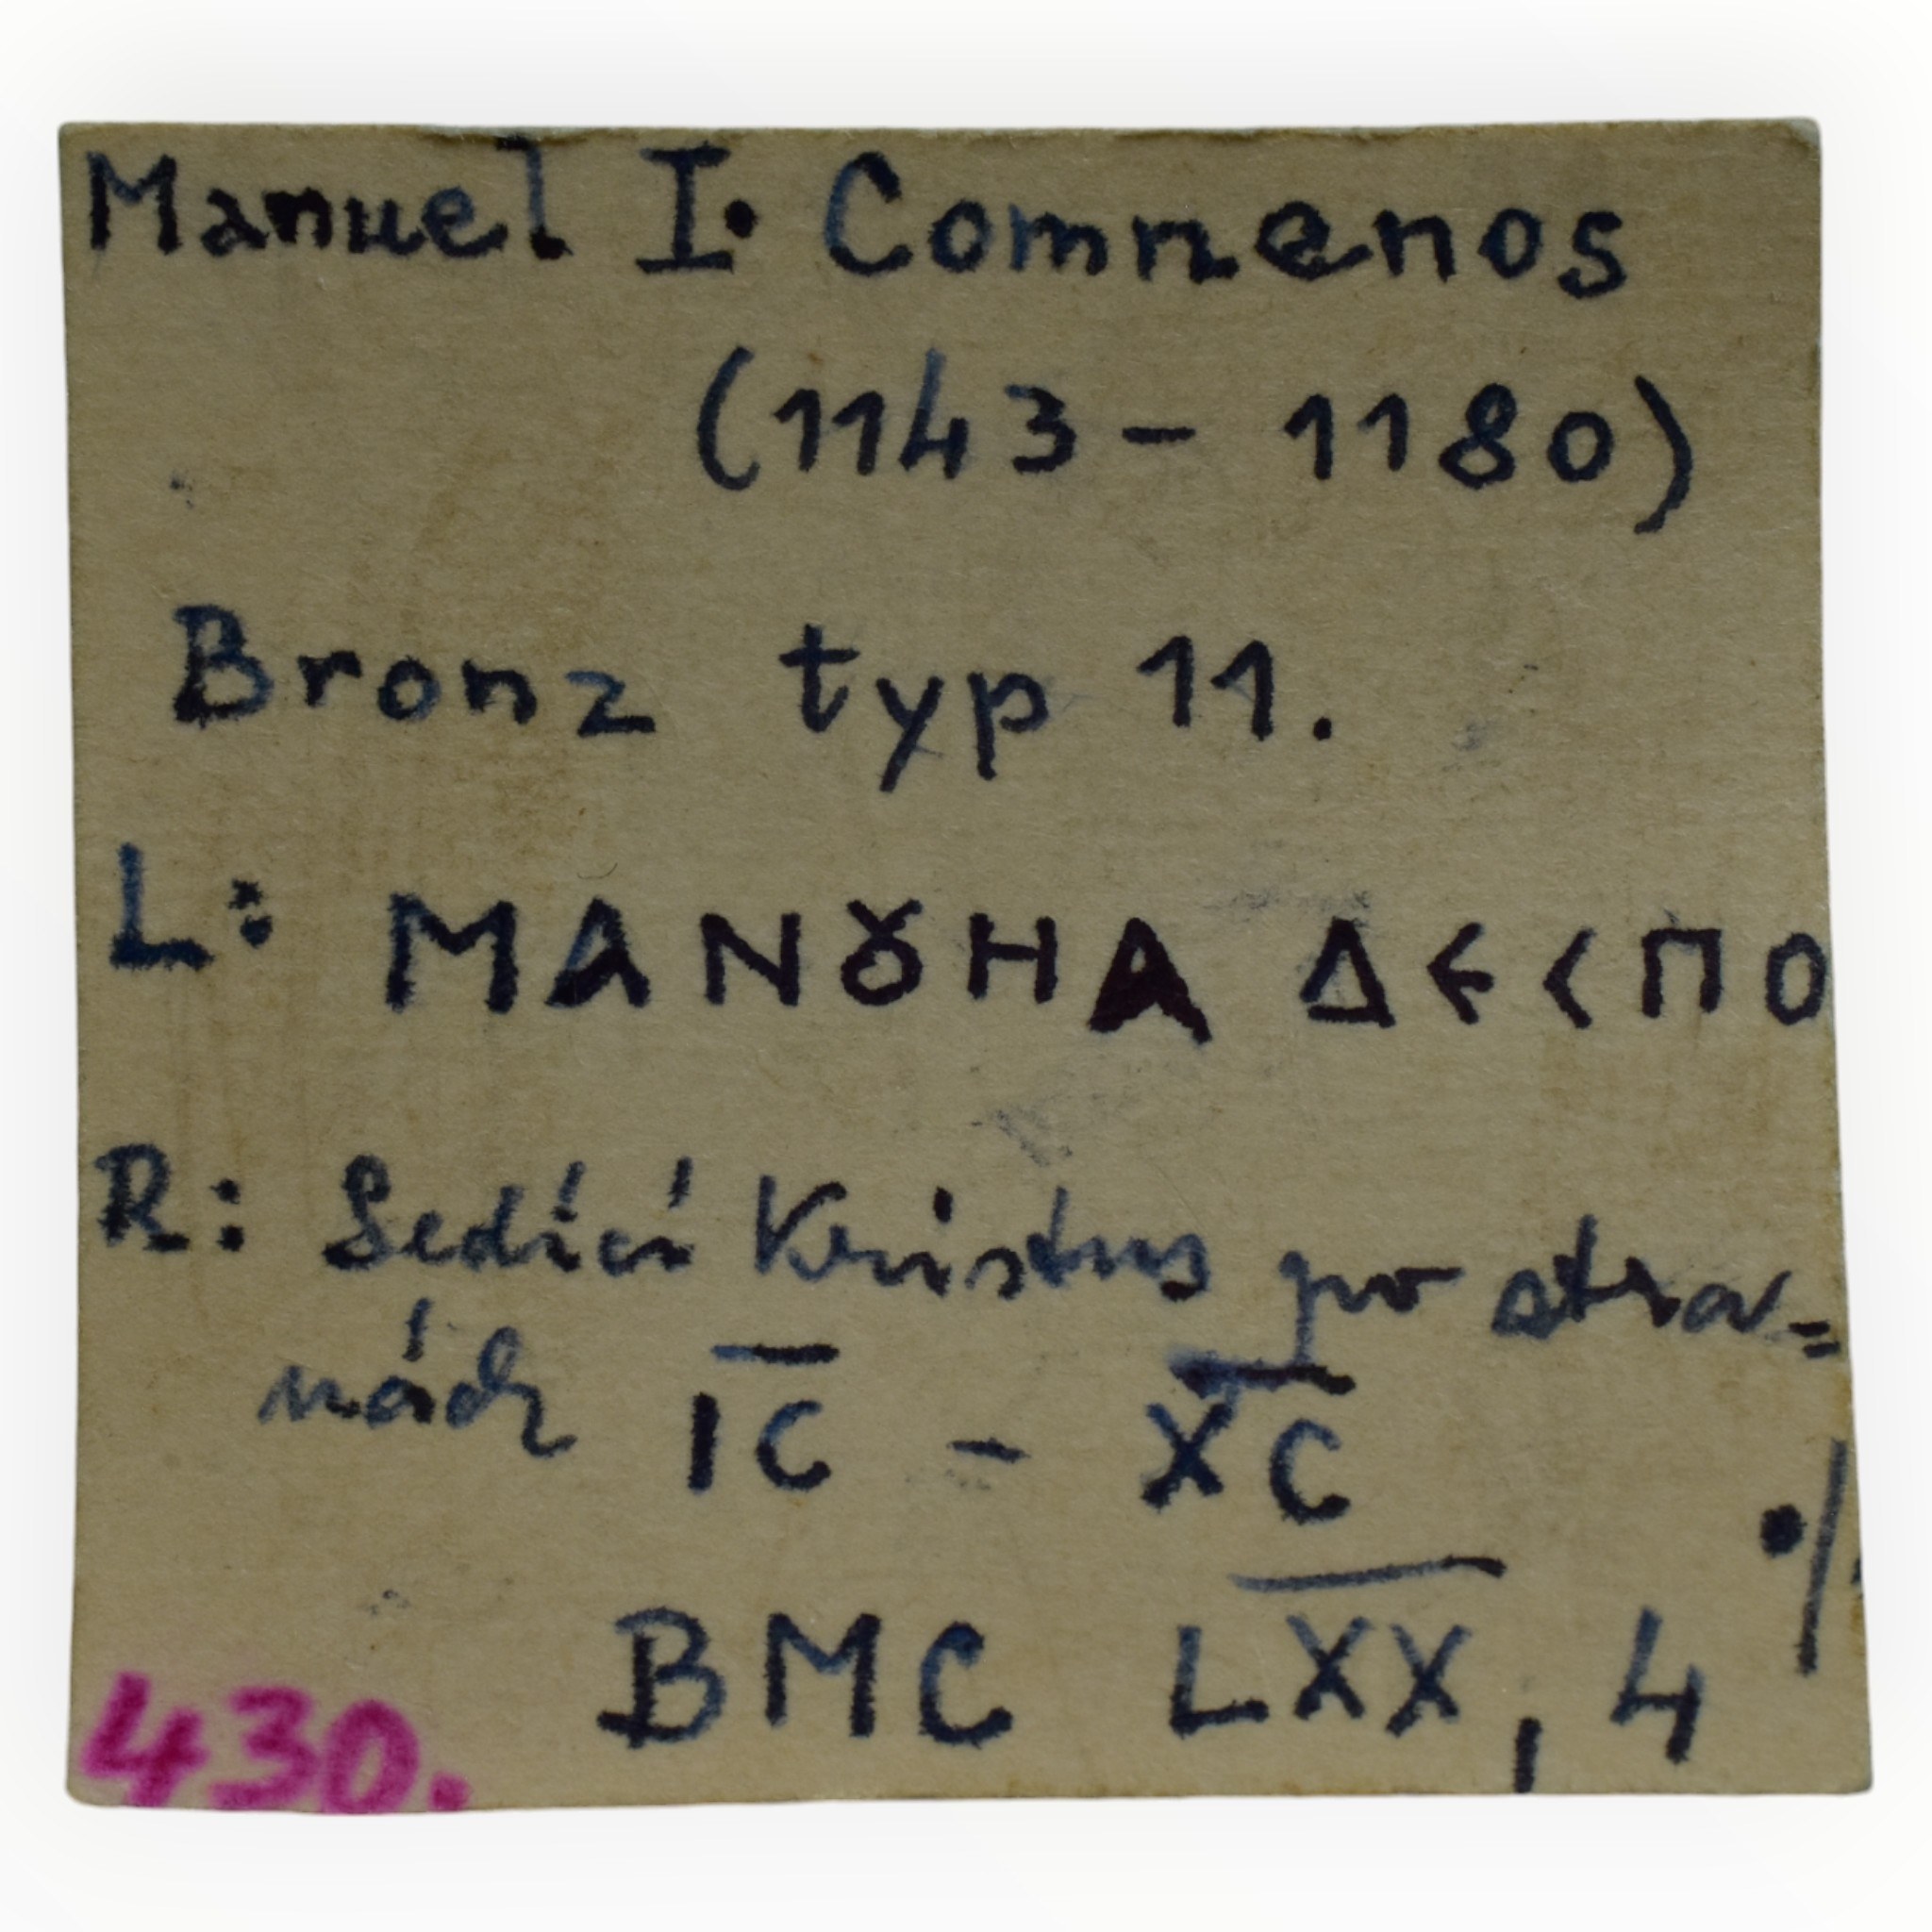 Manuel I. Comnenos
(1143 - 1180)
Bronz typ 11.
L: ΜΑΝȣΗΑ ΔΕСΠΟ
R: Sedící Kristus po stra=
nách I̅C̅ - X̅C̅
./.
BMC LXX, 4
430.